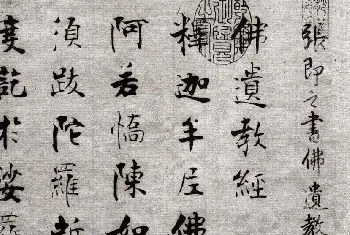 張即之書佛遺教
佛遺教經
釋迦牟尼佛
阿若憍陳如
須跋陀羅
度範於娑羅